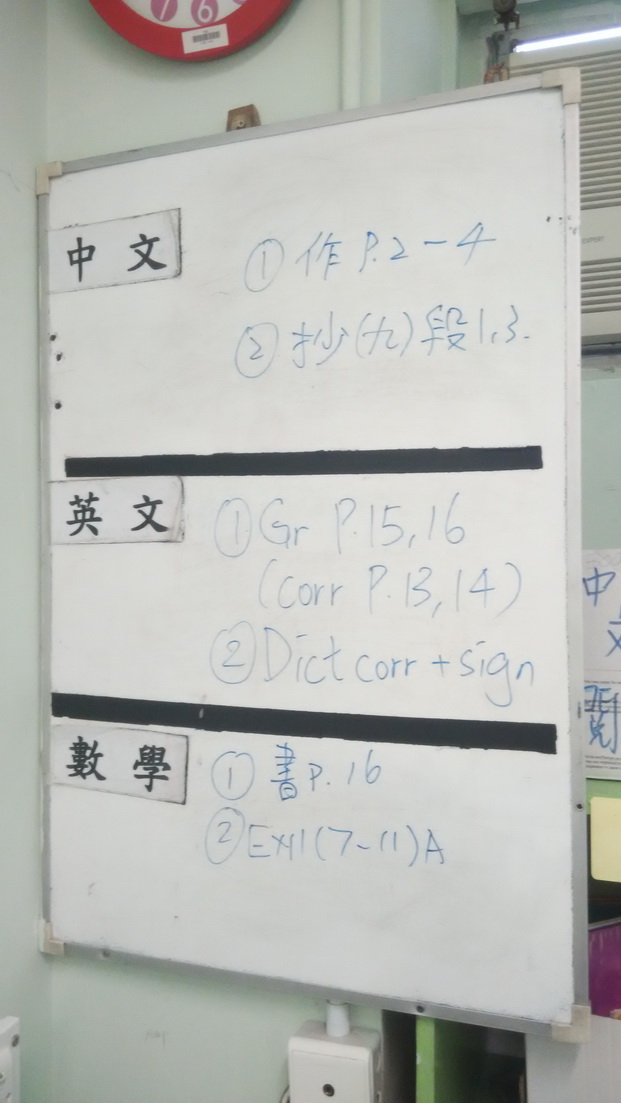 7 6
中文
① 作 P.2-4
② 抄(九)段1,3.
英文
① Gr P.15,16
(corr P.13,14)
② Dict corr + sign
數學
① 書 P.16
② Ex1(7-11)A
中
文